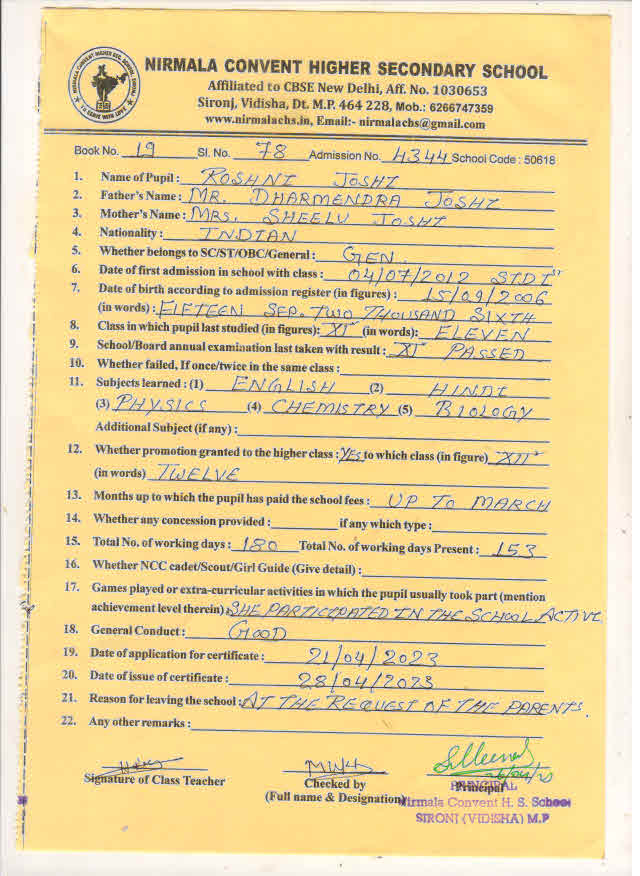 NIRMALA CONVENT HIGHER SECONDARY SCHOOL
Affiliated to CBSE New Delhi, Aff. No. 1030653
Sironj, Vidisha, Dt. M.P. 464 228, Mob.: 6266747359
www.nirmalachs.in, Email:- nirmalachs@gmail.com
Book No. 19 Sl. No. 78 Admission No. 4344 School Code : 50618
1. Name of Pupil : ROSHNI JOSHI
2. Father's Name : MR. DHARMENDRA JOSHI
3. Mother's Name : MRS. SHEELU JOSHI
4. Nationality : INDIAN
5. Whether belongs to SC/ST/OBC/General : GEN.
6. Date of first admission in school with class : 04/07/2012 STD I ST
7. Date of birth according to admission register (in figures) : 15/09/2006
(in words) : FIFTEEN SEP. TWO THOUSAND SIXTH
8. Class in which pupil last studied (in figures): XI (in words): ELEVEN
9. School/Board annual examination last taken with result : XI PASSED
10. Whether failed, If once/twice in the same class :
11. Subjects learned : (1) ENGLISH (2) HINDI
(3) PHYSICS (4) CHEMISTRY (5) BIOLOGY
Additional Subject (if any) :
12. Whether promotion granted to the higher class : YES to which class (in figure) XII
(in words) TWELVE
13. Months up to which the pupil has paid the school fees : UP TO MARCH
14. Whether any concession provided : if any which type :
15. Total No. of working days : 180 Total No. of working days Present : 153
16. Whether NCC cadet/Scout/Girl Guide (Give detail) :
17. Games played or extra-curricular activities in which the pupil usually took part (mention
achievement level therein) SHE PARTICIPATED IN THE SCHOOL ACTIVE
18. General Conduct : GOOD
19. Date of application for certificate : 21/04/2023
20. Date of issue of certificate : 28/04/2023
21. Reason for leaving the school : AT THE REQUEST OF THE PARENTS.
22. Any other remarks :
Signature of Class Teacher
Checked by
(Full name & Designation)
Principal
PRINCIPAL
Nirmala Convent H. S. School
SIRONJ (VIDISHA) M.P